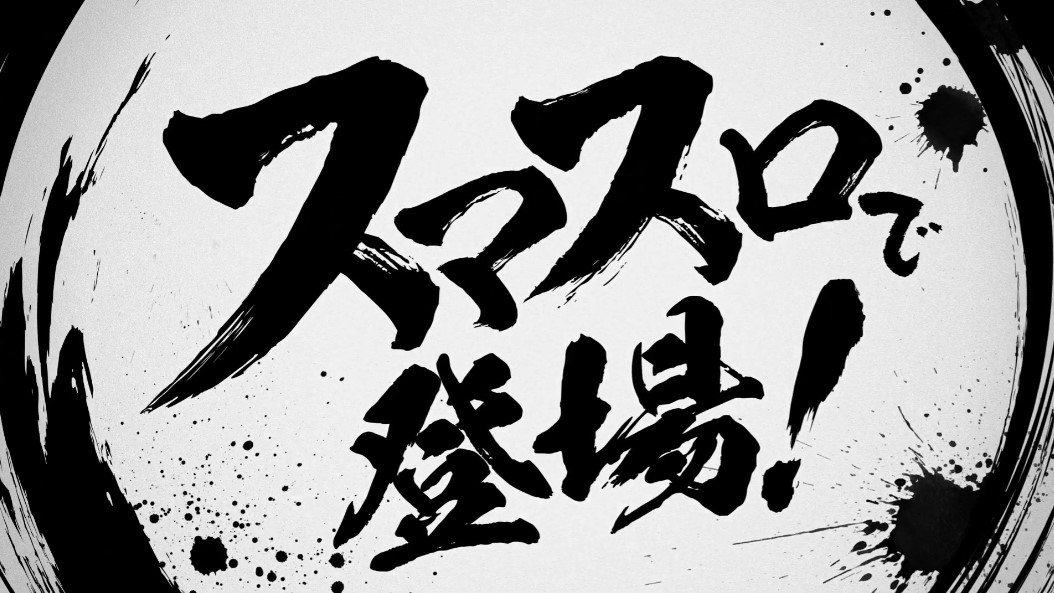 スマスロで
登場!